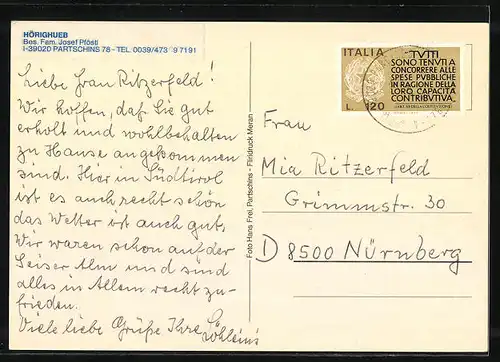 HÖRIGHUEB
Bes. Fam. Josef Pföstl
I-39020 PARTSCHINS 78 - TEL. 0039/473 97191
Liebe Frau Ritzerfeld!
Wir hoffen, daß Sie gut
erholt und wohlbehalten
zu Hause angekommen
sind. Hier in Südtirol
ist es auch recht schön
das Wetter ist auch gut.
Wir waren schon auf der
Seiser Alm und sind
alles in Allem recht zu-
frieden.
Viele liebe Grüße Ihre
Foto Hans Frei, Partschins - Flirdruck Meran
ITALIA
L. 120
TUTTI
SONO TENUTI A
CONCORRERE ALLE
SPESE PUBBLICHE
IN RAGIONE DELLA
LORO CAPACITÀ
CONTRIBUTIVA
Frau
Mia Ritzerfeld
Grimmstr. 30
D 8500 Nürnberg